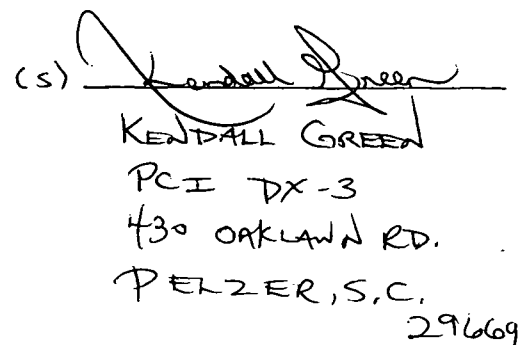 (s) Kendall Green
KENDALL GREEN
PCI DX-3
430 OAKLAWN RD.
PELZER, S.C.
29669